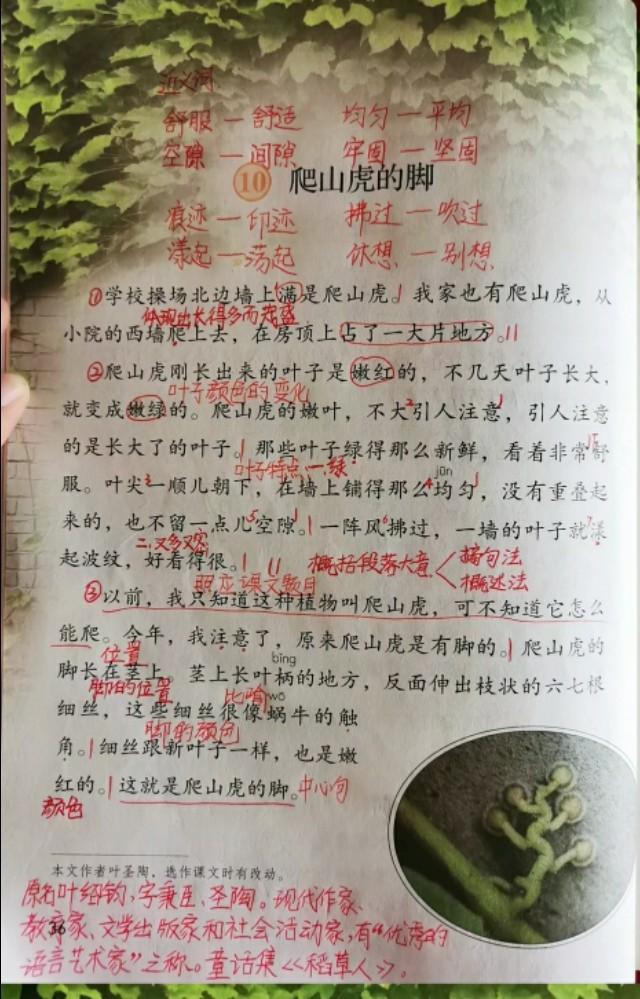 近义词
舒服—舒适 均匀—平均
空隙—间隙 牢固—坚固
10 爬山虎的脚
痕迹—印迹 拂过—吹过
漾起—荡起 休想—别想
①学校操场北边墙上满是爬山虎。我家也有爬山虎，从
体现出长得多而茂盛
小院的西墙爬上去，在房顶上占了一大片地方。
②爬山虎刚长出来的叶子是嫩红的，不几天叶子长大，
叶子颜色的变化
就变成嫩绿的。爬山虎的嫩叶，不大引人注意，引人注意
的是长大了的叶子。那些叶子绿得那么新鲜，看着非常舒
叶子特点：一、绿
jūn
服。叶尖一顺儿朝下，在墙上铺得那么均匀，没有重叠起
来的，也不留一点儿空隙。一阵风拂过，一墙的叶子就漾
二、又多又密
起波纹，好看得很。 概括段落大意 摘句法
概述法
照应课文题目
③以前，我只知道这种植物叫爬山虎，可不知道它怎么
能爬。今年，我注意了，原来爬山虎是有脚的。爬山虎的
位置
bǐng
脚长在茎上。茎上长叶柄的地方，反面伸出枝状的六七根
脚的位置 比喻
wō
细丝，这些细丝很像蜗牛的触
脚的颜色
角。细丝跟新叶子一样，也是嫩
红的。这就是爬山虎的脚。中心句
颜色
本文作者叶圣陶，选作课文时有改动。
原名叶绍钧，字秉臣、圣陶。现代作家、
教育家、文学出版家和社会活动家，有“优秀的
36
语言艺术家”之称。童话集《稻草人》。